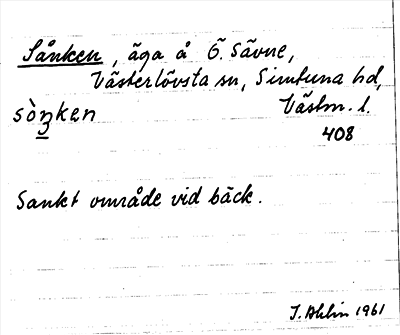 Sånken, äga å Ö. Sävne,
Västerlövsta sn, Simtuna hd,
sòŋken Västm. l.
408
Sankt område vid bäck.
I. Ahlin 1961